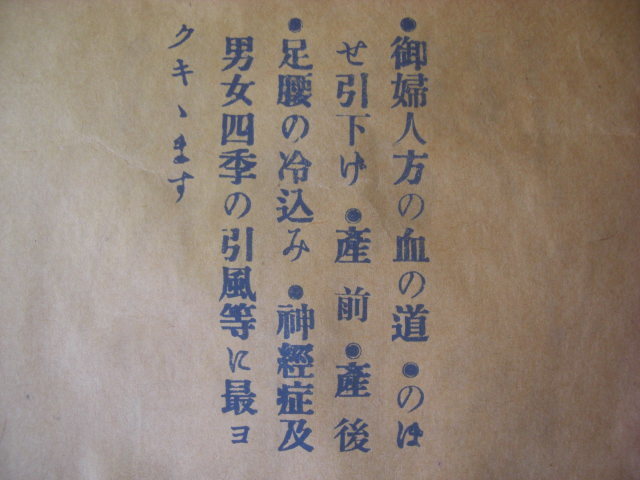 ◉御婦人方の血の道◉のぼ
せ引下げ◉産前◉産後
◉足腰の冷込み◉神經症及
男女四季の引風等に最ヨ
クキヽます